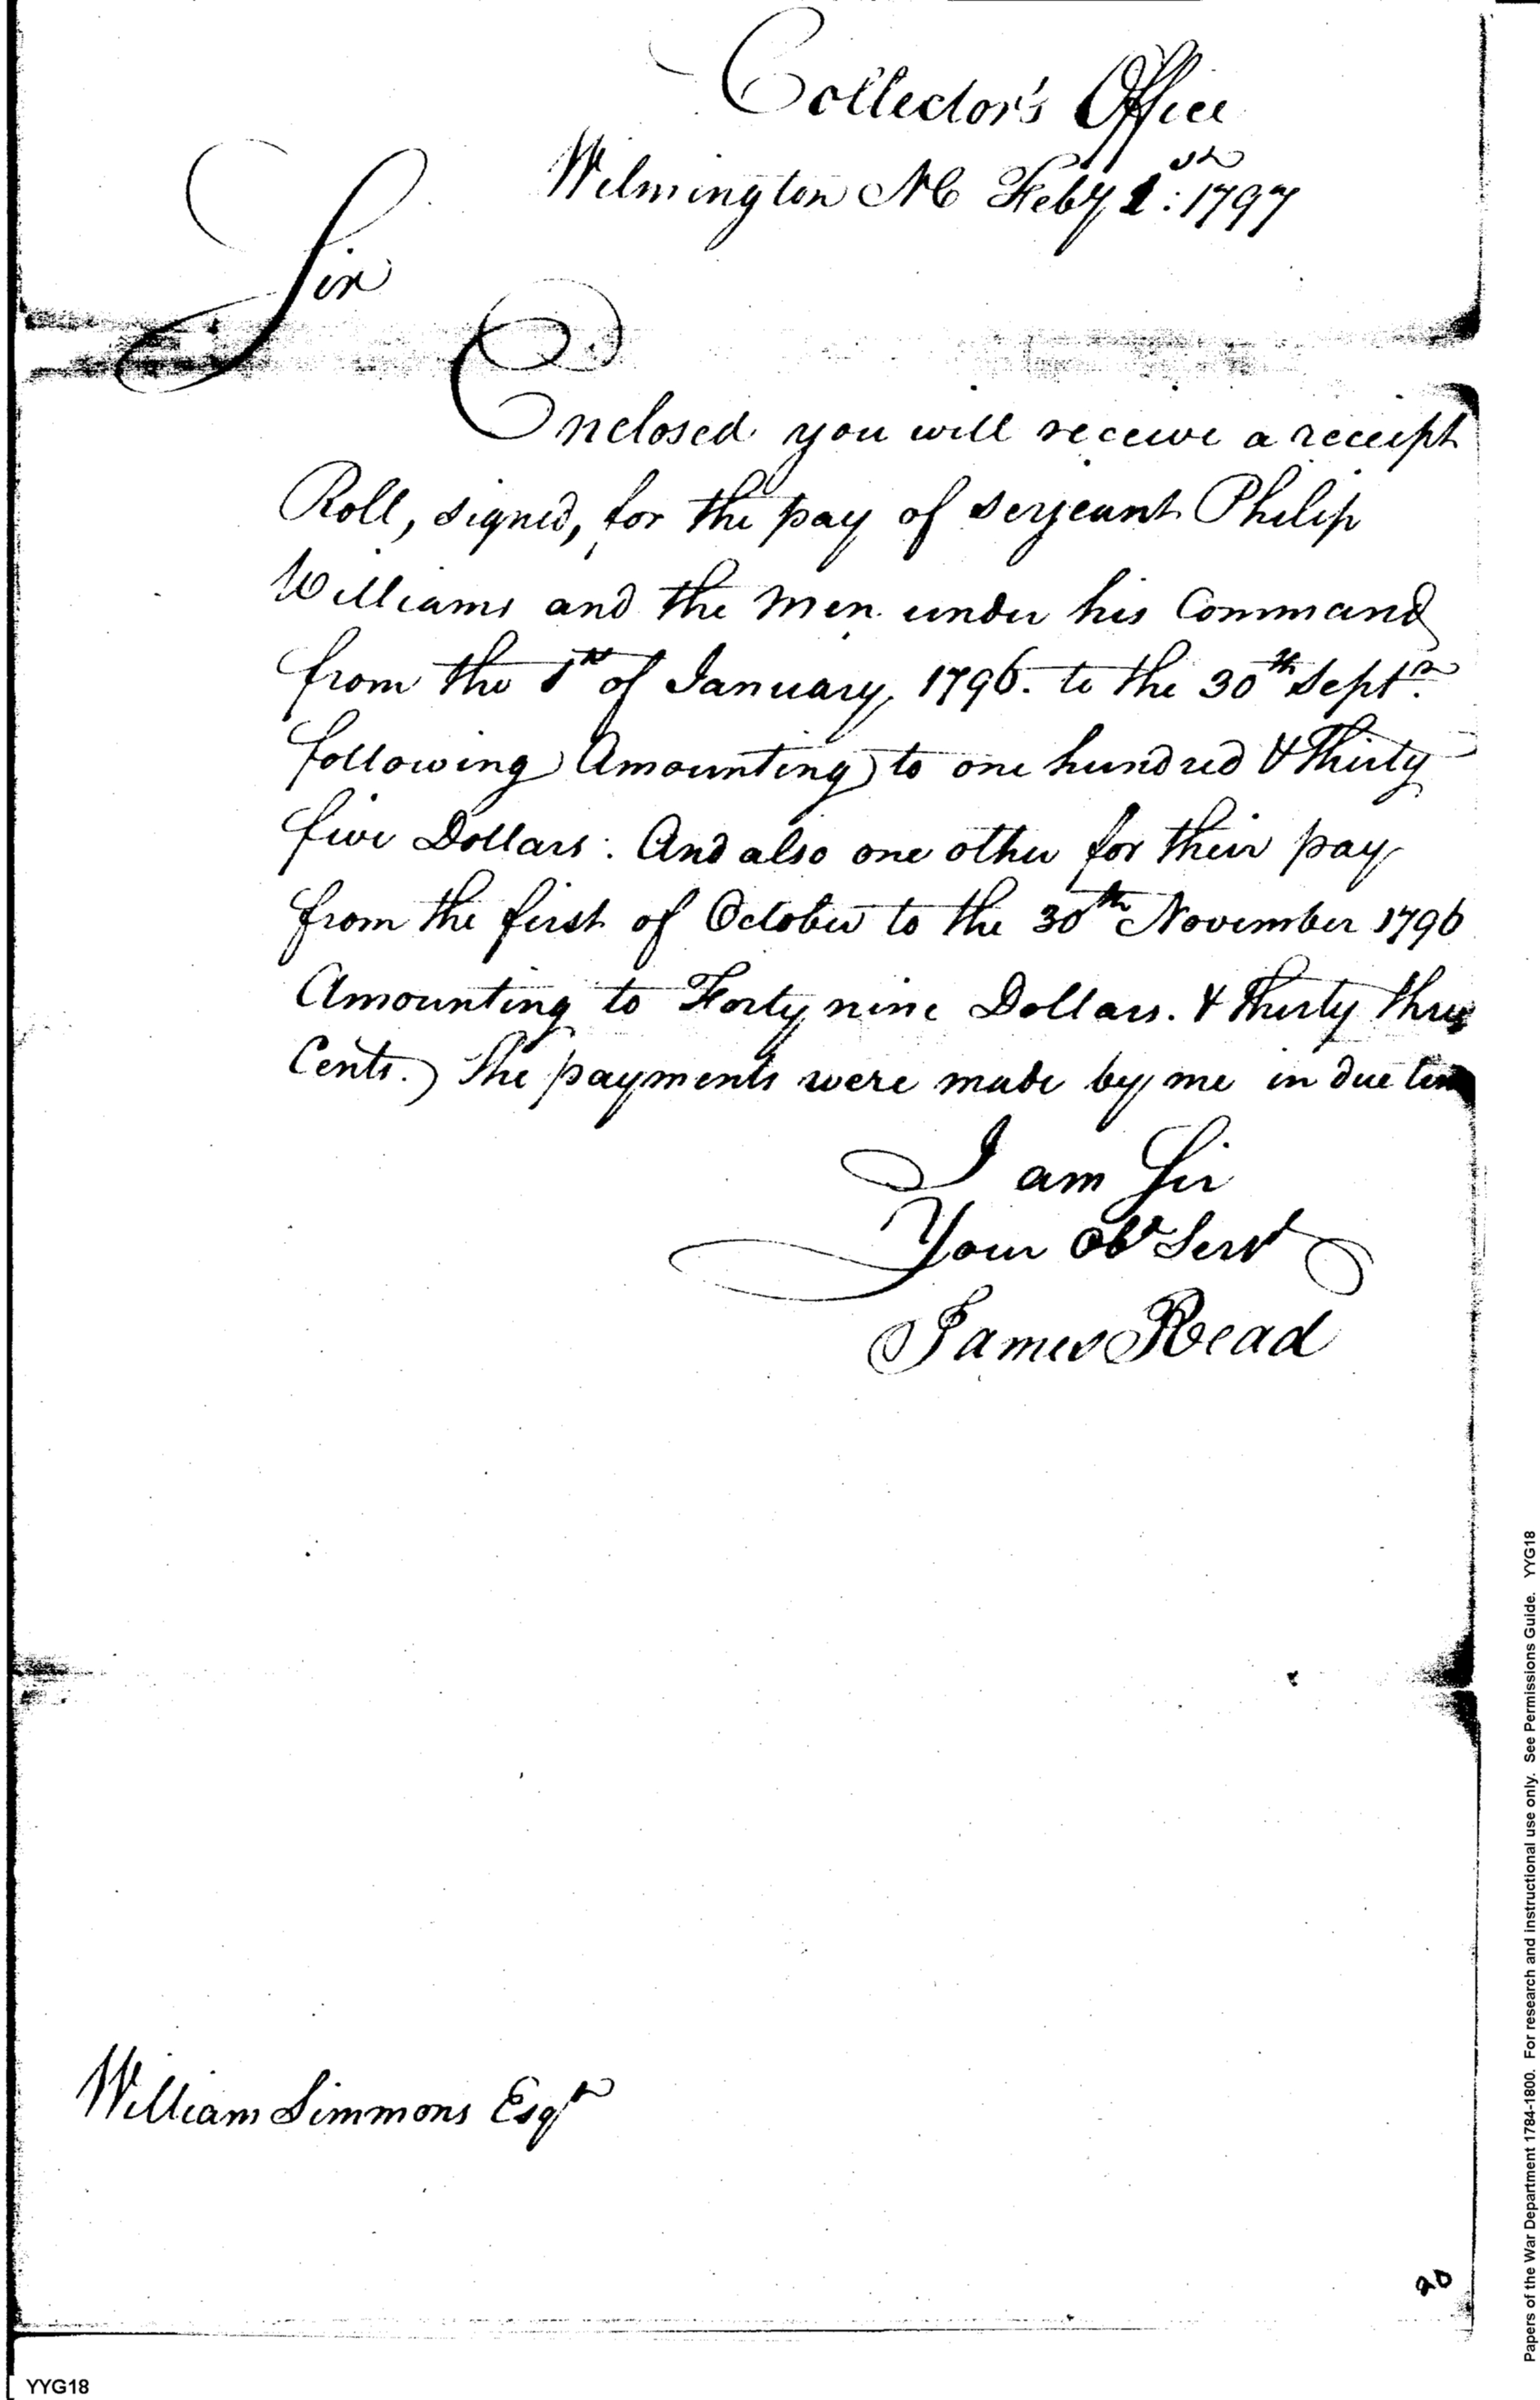 Collector's Office
Wilmington NC Feby 1st: 1797
Sir
Enclosed you will receive a receipt
Roll, signed, for the pay of serjeant Philip
Williams and the men under his Command
from the 1st of January 1796. to the 30th Septr.
following Amounting to one hundred & Thirty
five Dollars. And also one other for their pay
from the first of October to the 30th November 1796
Amounting to Forty nine Dollars. & Thirty three
Cents. The payments were made by me in due
I am Sir
Your Obt Servt
James Read
William Simmons Esqr
20
YYG18
Papers of the War Department 1784-1800. For research and instructional use only. See Permissions Guide. YYG18